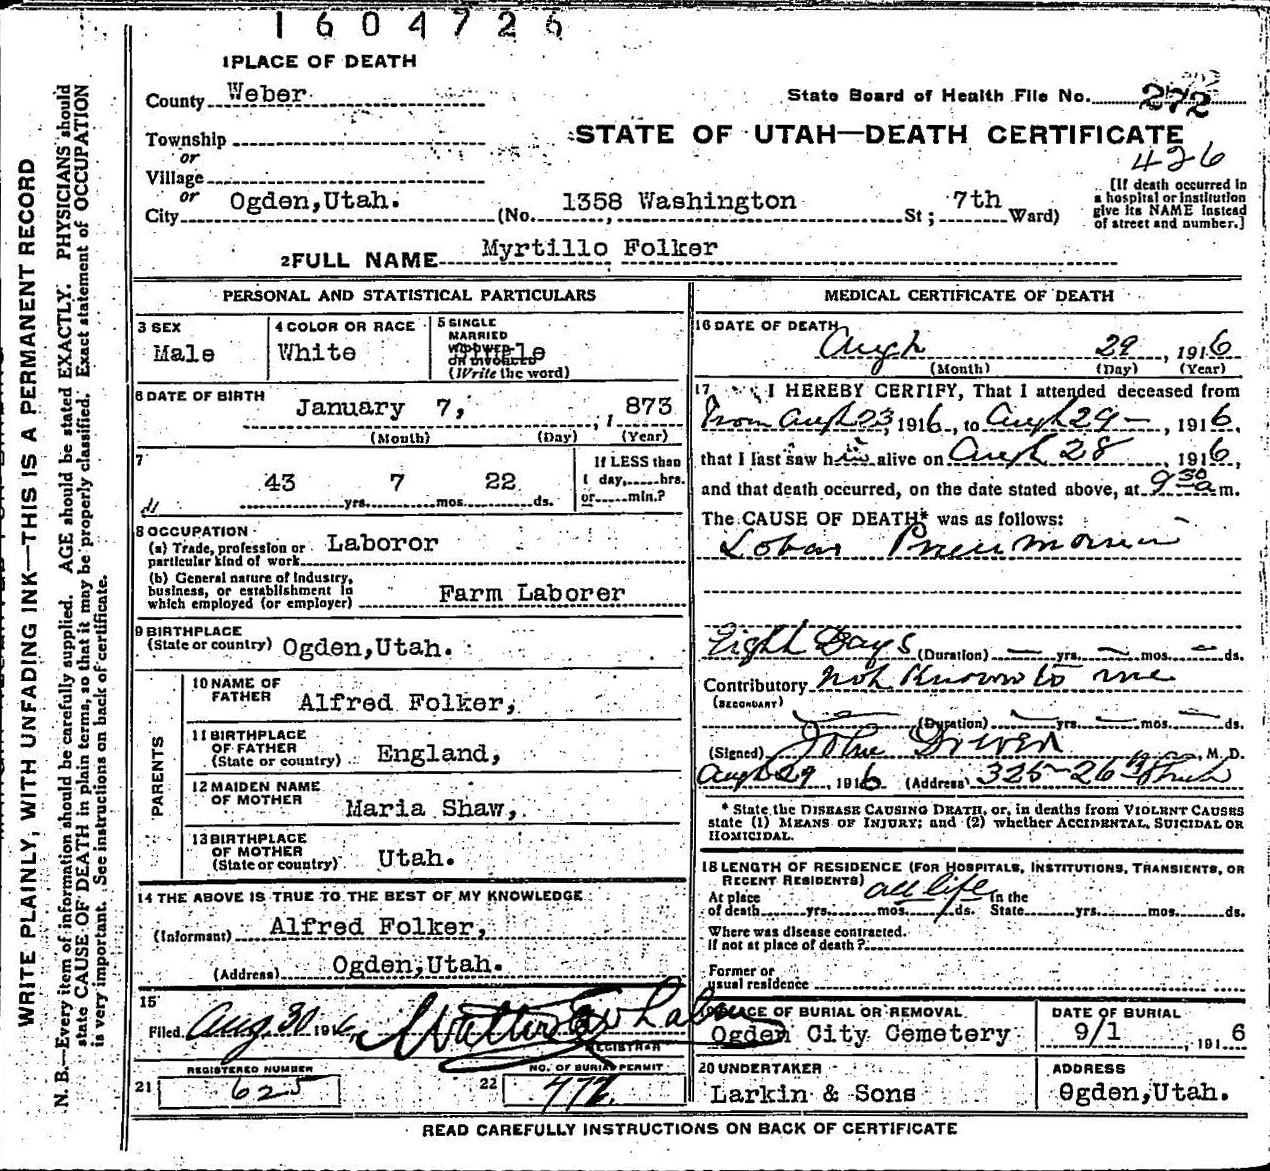 1604726
1 PLACE OF DEATH
County Weber
State Board of Health File No. 272
Township
STATE OF UTAH—DEATH CERTIFICATE
or
426
Village
or
City Ogden, Utah. (No. 1358 Washington St; 7th Ward)
[If death occurred in
a hospital or institution
give its NAME instead
of street and number.]
2 FULL NAME Myrtillo Folker
PERSONAL AND STATISTICAL PARTICULARS
3 SEX
Male
4 COLOR OR RACE
White
5 SINGLE
MARRIED
WIDOWED
OR DIVORCED
Single
(Write the word)
6 DATE OF BIRTH
January 7, , 1 873
(Month) (Day) (Year)
7
43 yrs. 7 mos. 22 ds.
If LESS than
1 day, hrs.
or min.?
8 OCCUPATION
(a) Trade, profession or
particular kind of work Laboror
(b) General nature of industry,
business, or establishment in
which employed (or employer) Farm Laborer
9 BIRTHPLACE
(State or country) Ogden, Utah.
PARENTS
10 NAME OF
FATHER Alfred Folker,
11 BIRTHPLACE
OF FATHER
(State or country) England,
12 MAIDEN NAME
OF MOTHER Maria Shaw,
13 BIRTHPLACE
OF MOTHER
(State or country) Utah.
14 THE ABOVE IS TRUE TO THE BEST OF MY KNOWLEDGE
(Informant) Alfred Folker,
(Address) Ogden, Utah.
15
Filed Aug 30 191 6,
REGISTRAR
21 REGISTERED NUMBER
625
22 NO. OF BURIAL PERMIT
472
MEDICAL CERTIFICATE OF DEATH
16 DATE OF DEATH
29, 1916
(Month) (Day) (Year)
17 I HEREBY CERTIFY, That I attended deceased from
From 23, 1916, to 29 —, 1916,
that I last saw him alive on 28, 1916,
and that death occurred, on the date stated above, at 9 30 a m.
The CAUSE OF DEATH* was as follows:
Lobar Pneumonia
Eight Days (Duration) — yrs. — mos. — ds.
Contributory not known to me
(SECONDARY)
(Duration) — yrs. — mos. — ds.
(Signed) John Driver, M. D.
29, 1916 (Address)
* State the DISEASE CAUSING DEATH, or, in deaths from VIOLENT CAUSES
state (1) MEANS OF INJURY; and (2) whether ACCIDENTAL, SUICIDAL OR
HOMICIDAL.
18 LENGTH OF RESIDENCE (FOR HOSPITALS, INSTITUTIONS, TRANSIENTS, OR
RECENT RESIDENTS)
all life
At place In the
of death yrs. mos. ds. State yrs. mos. ds.
Where was disease contracted.
if not at place of death?
Former or
usual residence
19 PLACE OF BURIAL OR REMOVAL
Ogden City Cemetery
DATE OF BURIAL
9/1, 191 6
20 UNDERTAKER
Larkin & Sons
ADDRESS
Ogden, Utah.
READ CAREFULLY INSTRUCTIONS ON BACK OF CERTIFICATE
WRITE PLAINLY, WITH UNFADING INK—THIS IS A PERMANENT RECORD
N. B.—Every item of information should be carefully supplied. AGE should be stated EXACTLY. PHYSICIANS should
state CAUSE OF DEATH in plain terms, so that it may be properly classified. Exact statement of OCCUPATION
is very important. See instructions on back of certificate.